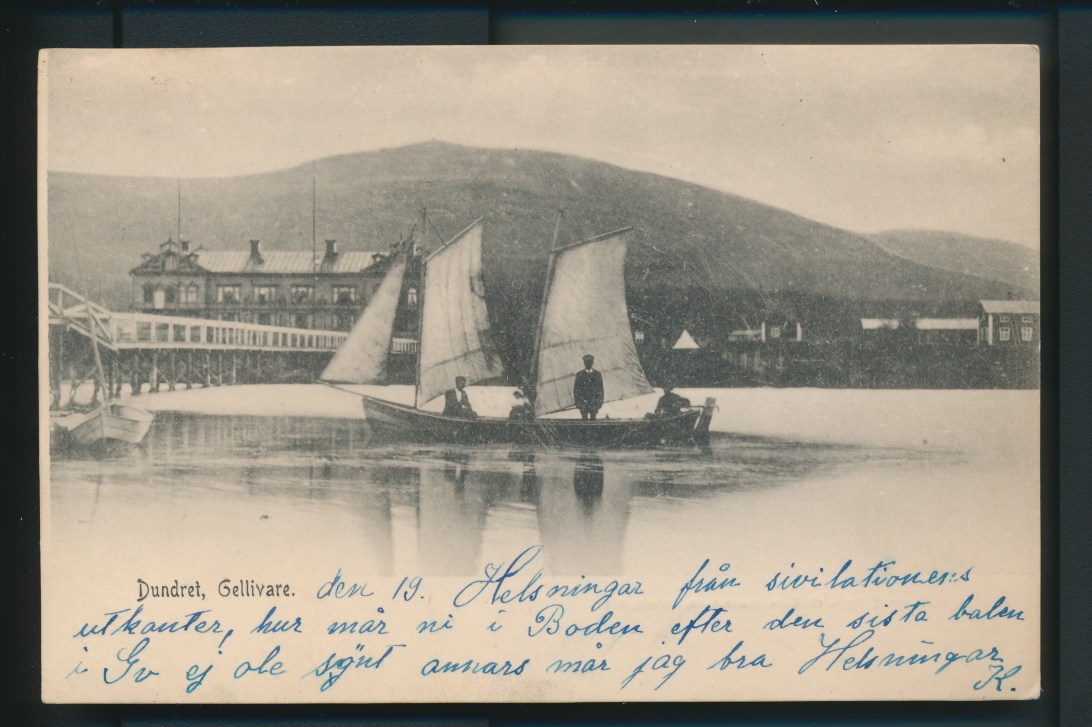 Dundret, Gellivare. den 19. Helsningar från sivilationens
utkanter, hur mår ni i Boden efter den sista balen
i Gv ej ole synt annars mår jag bra Helsningar
K.